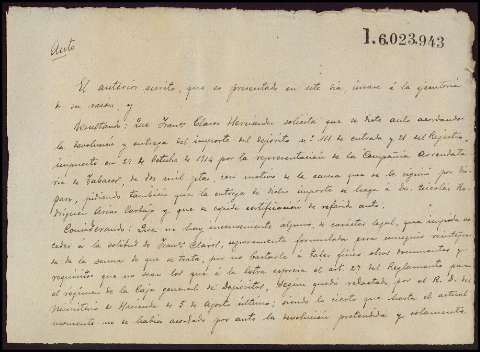 1.6.023.943
Auto
El anterior escrito, que es presentado en este día, únase á la ejecutoria
de su razon, y
Resultando: Que Franco Claros Hernandez solicita que se dicte auto acordando
la devolucion y entrega del importe del depósito n.º de entrada y 28 del Registro,
impuesto en 27 de Octubre de por la representacion de la Compañia Arrendata
ria de Tabacos, de dos mil ptas, con motivo de la causa que se le siguió por dis
paro, pidiendo también que la entrega de dicho importe se haga á Dn. Nicolas Ro
driguez Arias y que se expida certificacion de referido auto.
Considerando: Que no hay inconveniente alguno, de caracter legal, que impida ac
ceder á la solicitud de Franco Claros, nuevamente formulada para conseguir reintegro
de la suma de que se trata, por no bastarle á tales fines otros documentos y
requisitos que no sean los que á la letra expresa el art. 27 del Reglamento para
el régimen de la Caja general de Depósitos, segun quedó redactado por el R. D. del
Ministerio de Hacienda de 5 de Agosto último; siendo lo cierto que hasta el actual
momento no se habia acordado por auto la devolucion pretendida y solamente